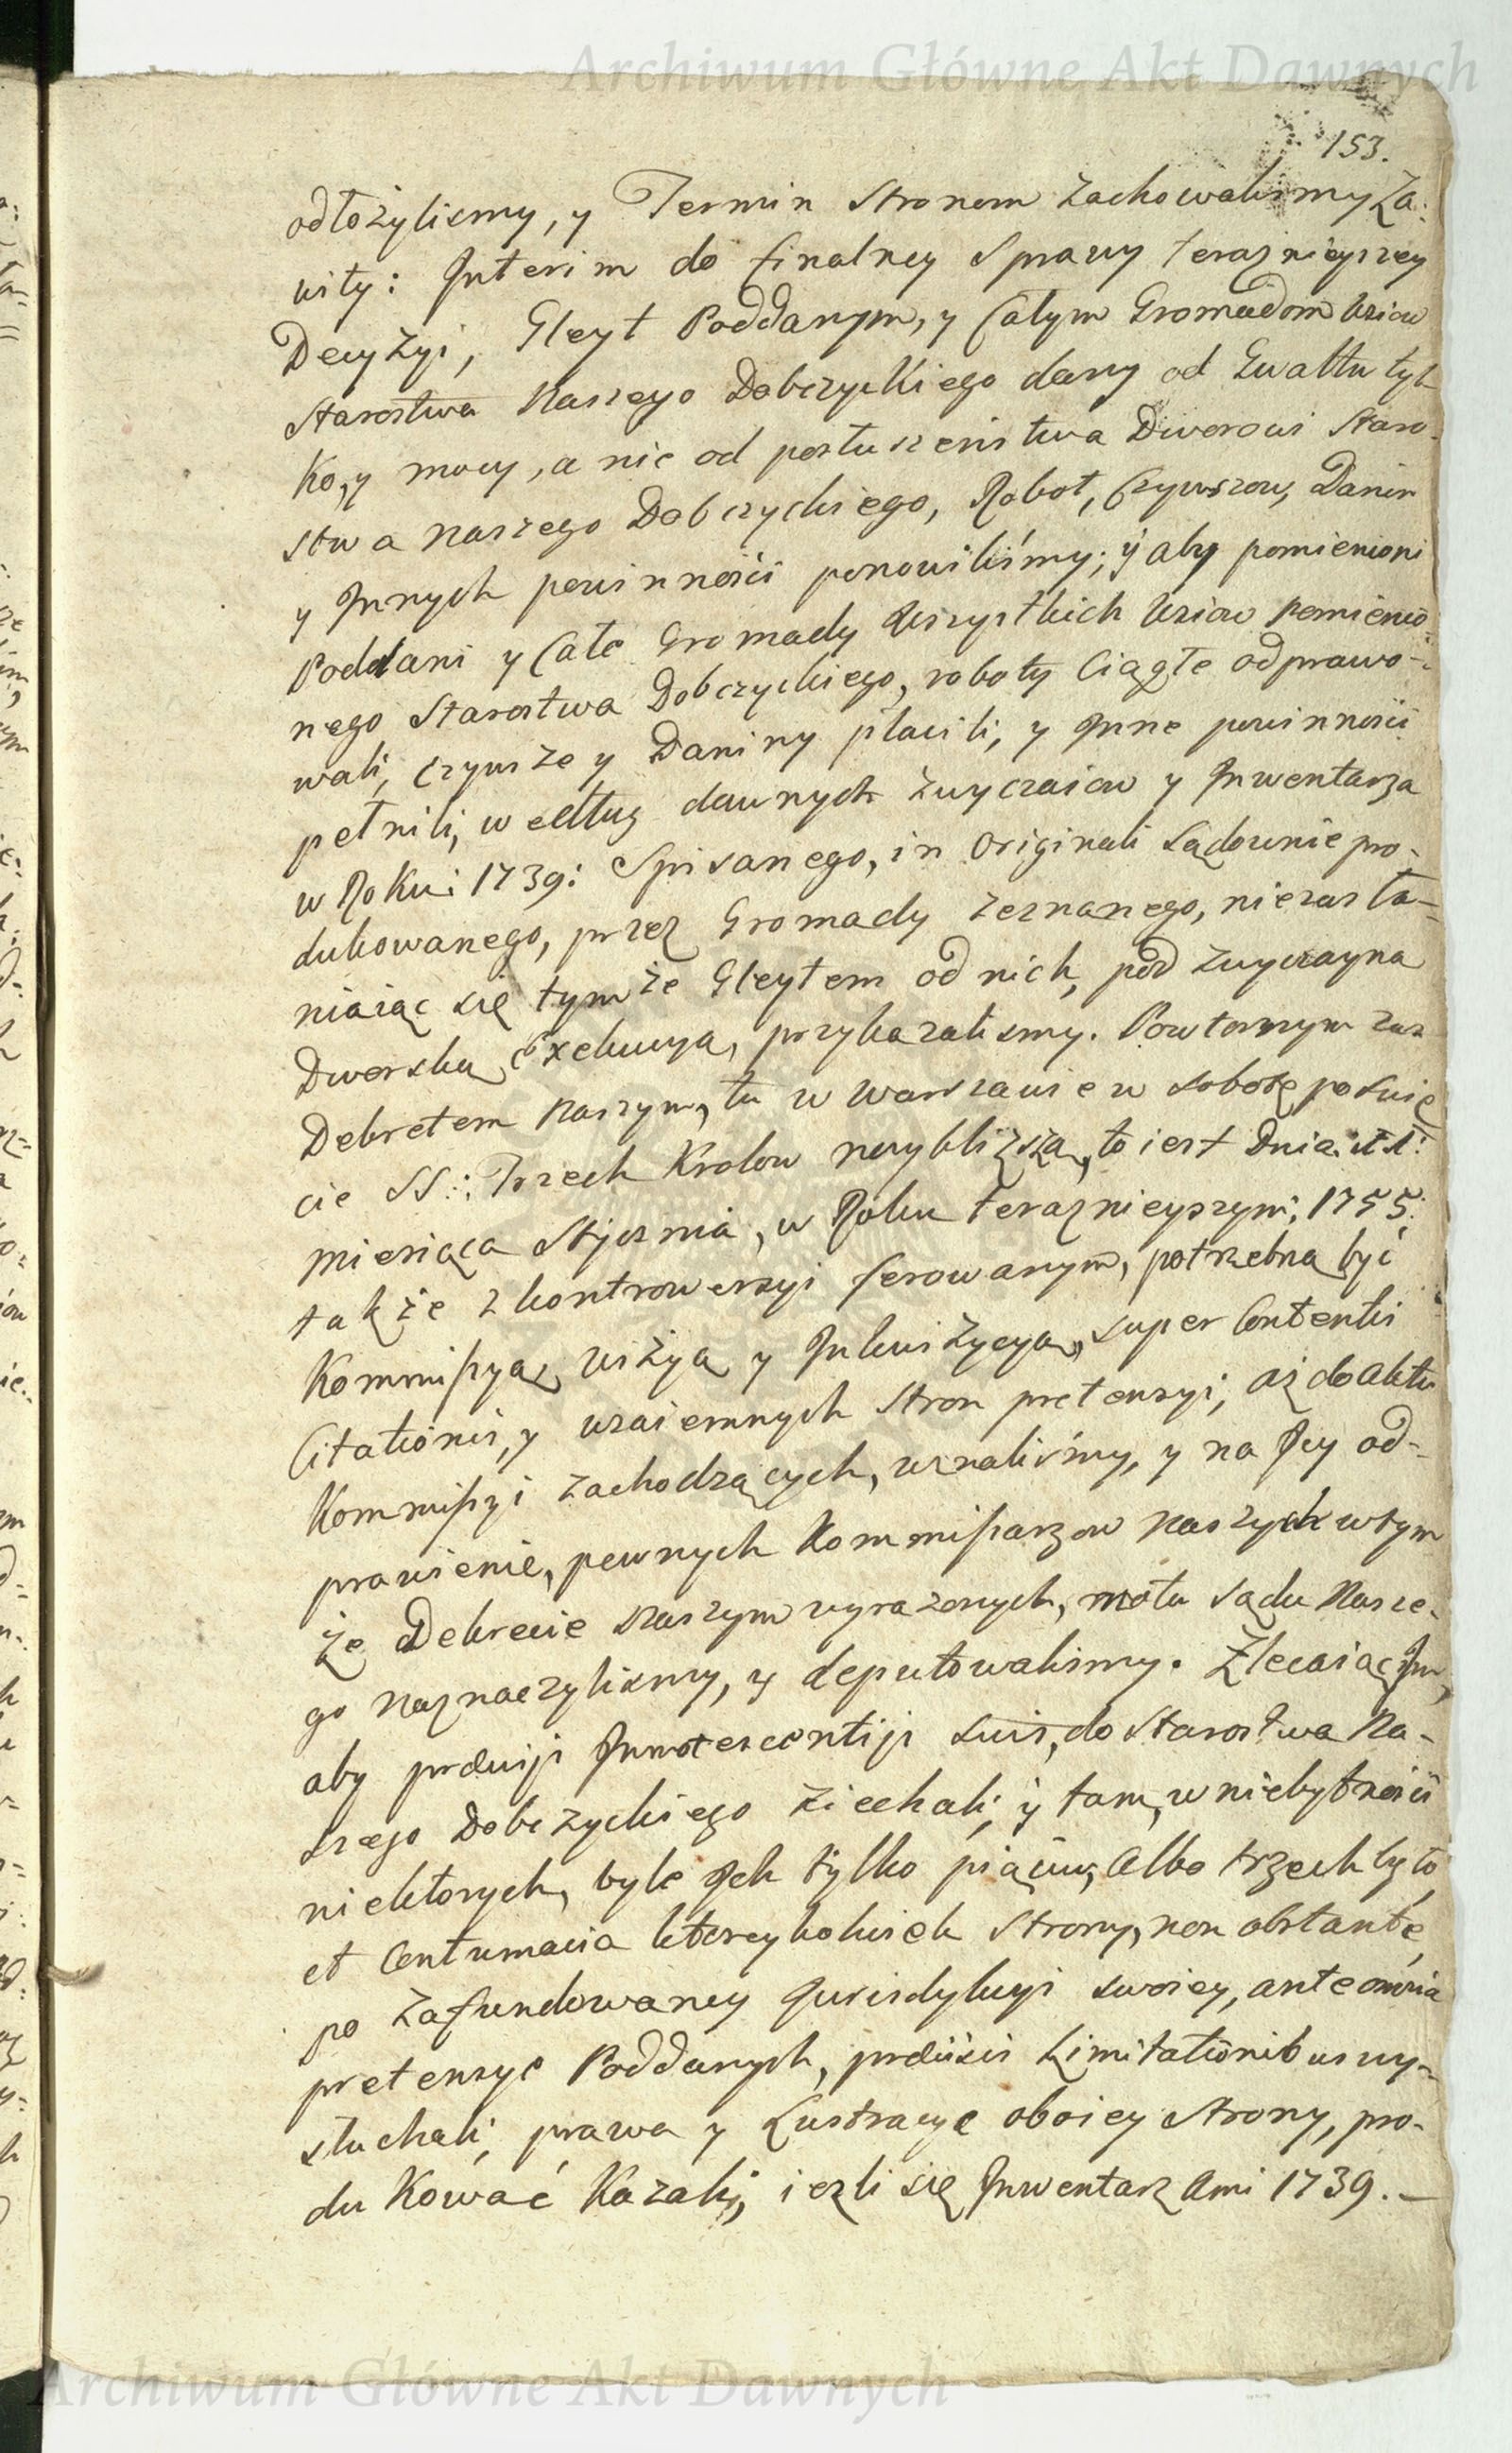 Archiwum Główne Akt Dawnych
153.
odłożylismy, y Termin Stronom zachowalismy Za:
wity: Interim do finalney Sprawy teraznieyszey
Decyzyi, Gleyt Poddanym, y Całym Gromadom Wsiow
Starostwa Naszego Dobczyckiego dany od Gwałtu tyl
ko, y mocy, a nie od posłuszenstwa Dworowi Staro-
stwa naszego Dobczyckiego, Robot, Czynszow, Danin
y Innych powinności ponowiliśmy; ÿ aby pomienieni
Poddani y Całe Gromady Wszystkich Wsiow pomienio-
nego Starostwa Dobczyckiego, roboty Ciągłe odprawo-
wali, Czynsze y Daniny płacili, y Inne powinności
pełnili, według dawnych zwyczaiow y Inwentarza
w Roku: 1739: Spisanego, in Originali Sądownie pro-
dukowanego, przez Gromady zeznanego, niezasła-
niaiąc się tymże Gleytem od nich, pod zwyczayną
Dworską Exekucyą, przykazalismy. Powtornym zas
Dekretem Naszym, tu w Warszawie w sobotę po swię
cie SS: Trzech Krolow naybliższą, to iest Dnia 11:
Miesiąca Stycznia, w Roku teraznieyszym, 1755:
także z kontrowersyi ferowanym, potrzebną być
Kommissyą, wizyą y Inkwizycyą, super Contentis
Citationis, y wzaiemnych Stron pretensyi, aż do aktu
Kommissyi zachodzących, uznaliśmy, y na Jey od-
prawienie, pewnych Kommissarzow Naszych w tym
że Dekrecie Naszym wyrazonych, motu Sądu Nasze-
go Naznaczylismy, y deputowalismy. Zlecaiąc Im,
aby prævijs Innotescentijs suis, do Starostwa Na-
szego Dobczyckiego ziechali, ÿ tam, w niebytności
niektorych, byle Ich tylko pięciu, Albo trzech było,
et Contumacia ktoreykolwiek Strony, non obstante,
po zafundowaney Jurisdykcyi swoiey, ante omnia
pretensye Poddanych, præviis Limitationibus wy-
słuchali, prawa y Lustracye oboiey Strony, pro-
dukować Kazali, iezli się Inwentarzami 1739. —
Archiwum Główne Akt Dawnych